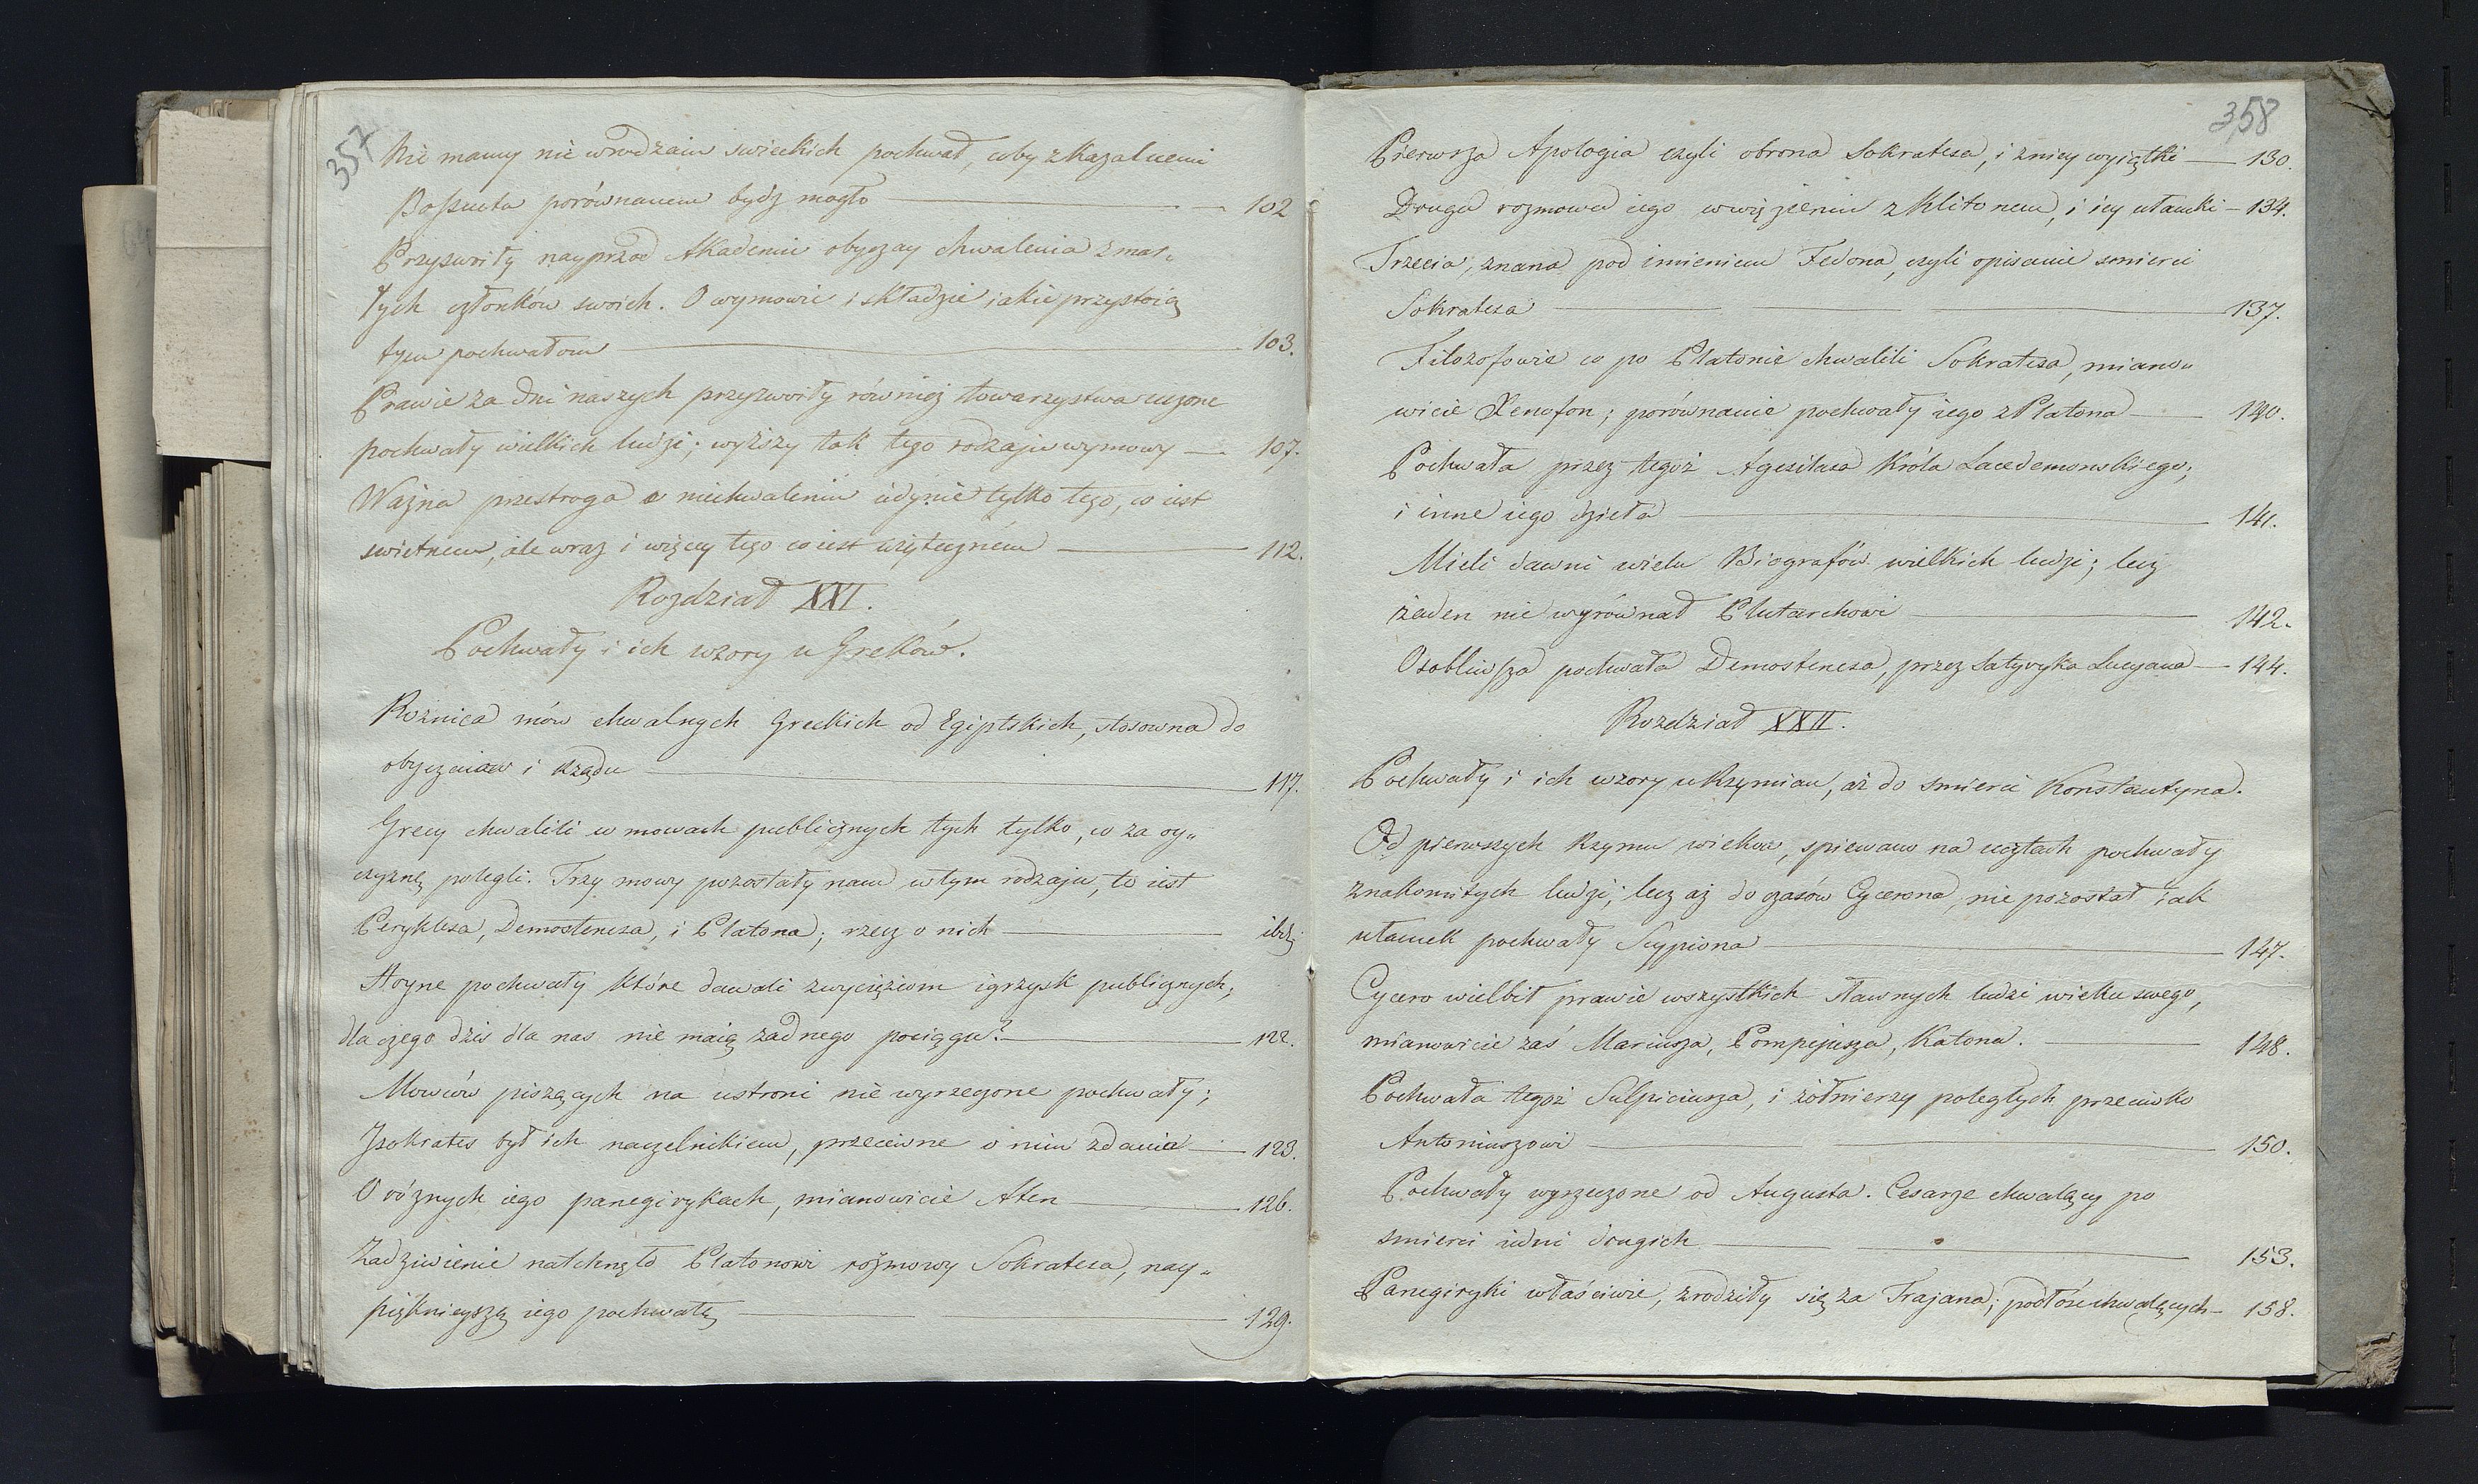 357
Nie mamy nic wrodzaiu swieckich pochwał, coby zkazalnemi
Boſsueta porównanem bydź mogło — 102
Przyswoiły nayprzod Akademie obyczay chwalenia zmar„
łych członków swoich. O wymowie i składzie iakie przystoią
tym pochwałom — 103.
Prawie za dni naszych przyswoiły równiéż towarzystwa uczone
pochwały wielkich ludzi; wyższy tok tego rodzaju wymowy — 107.
Ważna przestroga o niechwaleniu iedynie tylko tego, co iest
swietnem, ale wraz i więcey tego co iest użyteczném — 112.
Rozdział XXI.
Pochwały i ich wzory u Greków.
Roznica mów chwalnych Greckich od Egiptskich, stosowna do
obyczaiow i rządu — 117.
Grecy chwalili w mowach publicznych tych tylko, co za oy„
czyznę polegli. Trzy mowy pozostały nam wtym rodzaju, to iest
Peryklesa, Demostenesa, i Platona; rzecz o nich — ibid:
Hoyne pochwały które dawali zwycięzcom igrzysk publicznych;
dlaczego dzis dla nas nie maią zadnego pociągu? — 122.
Mowców piszących na ustroni nie wyrzeczone pochwały;
Jzokrates był ich naczelnikiem, przeciwne o nim zdania — 123.
O róznych iego panegirykach, mianowicie Aten — 126.
Zadziwienie natchnęło Platonowi rozmowy Sokratesa, nay„
pięknieyszą iego pochwałę — 129.
358
Pierwsza Apologia czyli obrona Sokratesa, i zniey wyiątki — 130.
Druga rozmowa iego wwięzieniu z Klitonem, i iey ułamki — 134.
Trzecia, znana pod imieniem Fedona, czyli opisanie smierci
Sokratesa — 137.
Filozofowie co po Platonie chwalili Sokratesa, miano„
wicie Xenofon; porównanie pochwały iego z Platona — 140.
Pochwała przez tegoż Agezilasa Króla Lacedemonskiego;
i inne iego dzieła — 141.
Mieli dawni wielu Biografów wielkich ludzi; lecz
żaden nie wyrównał Plutarchowi — 142.
Osobliwſza pochwała Demostenesa, przez Satyryka Lucyana — 144.
Rozdział XXII.
Pochwały i ich wzory u Rzymian, aż do smierci Konstantyna.
Od pierwszych Rzymu wieków, spiewano na ucztach pochwały
znakomitych ludzi; lecz aż do czasów Cycerona, nie pozostał iak
ułamek pochwały Scypiona — 147.
Cycero wielbił prawie wszystkich sławnych ludzi wieku swego,
mianowicie zaś Mariusza, Pompejusza, Katona. — 148.
Pochwała tegoż Sulpiciusza, i żółnierzy poległych przeciwko
Antoniuszowi — 150.
Pochwały wyrzeczone od Augusta. Cesarze chwalący po
smierci iedni drugich — 153.
Panegiryki właściwie, zrodziły się za Trajana; podłość chwalących — 158.